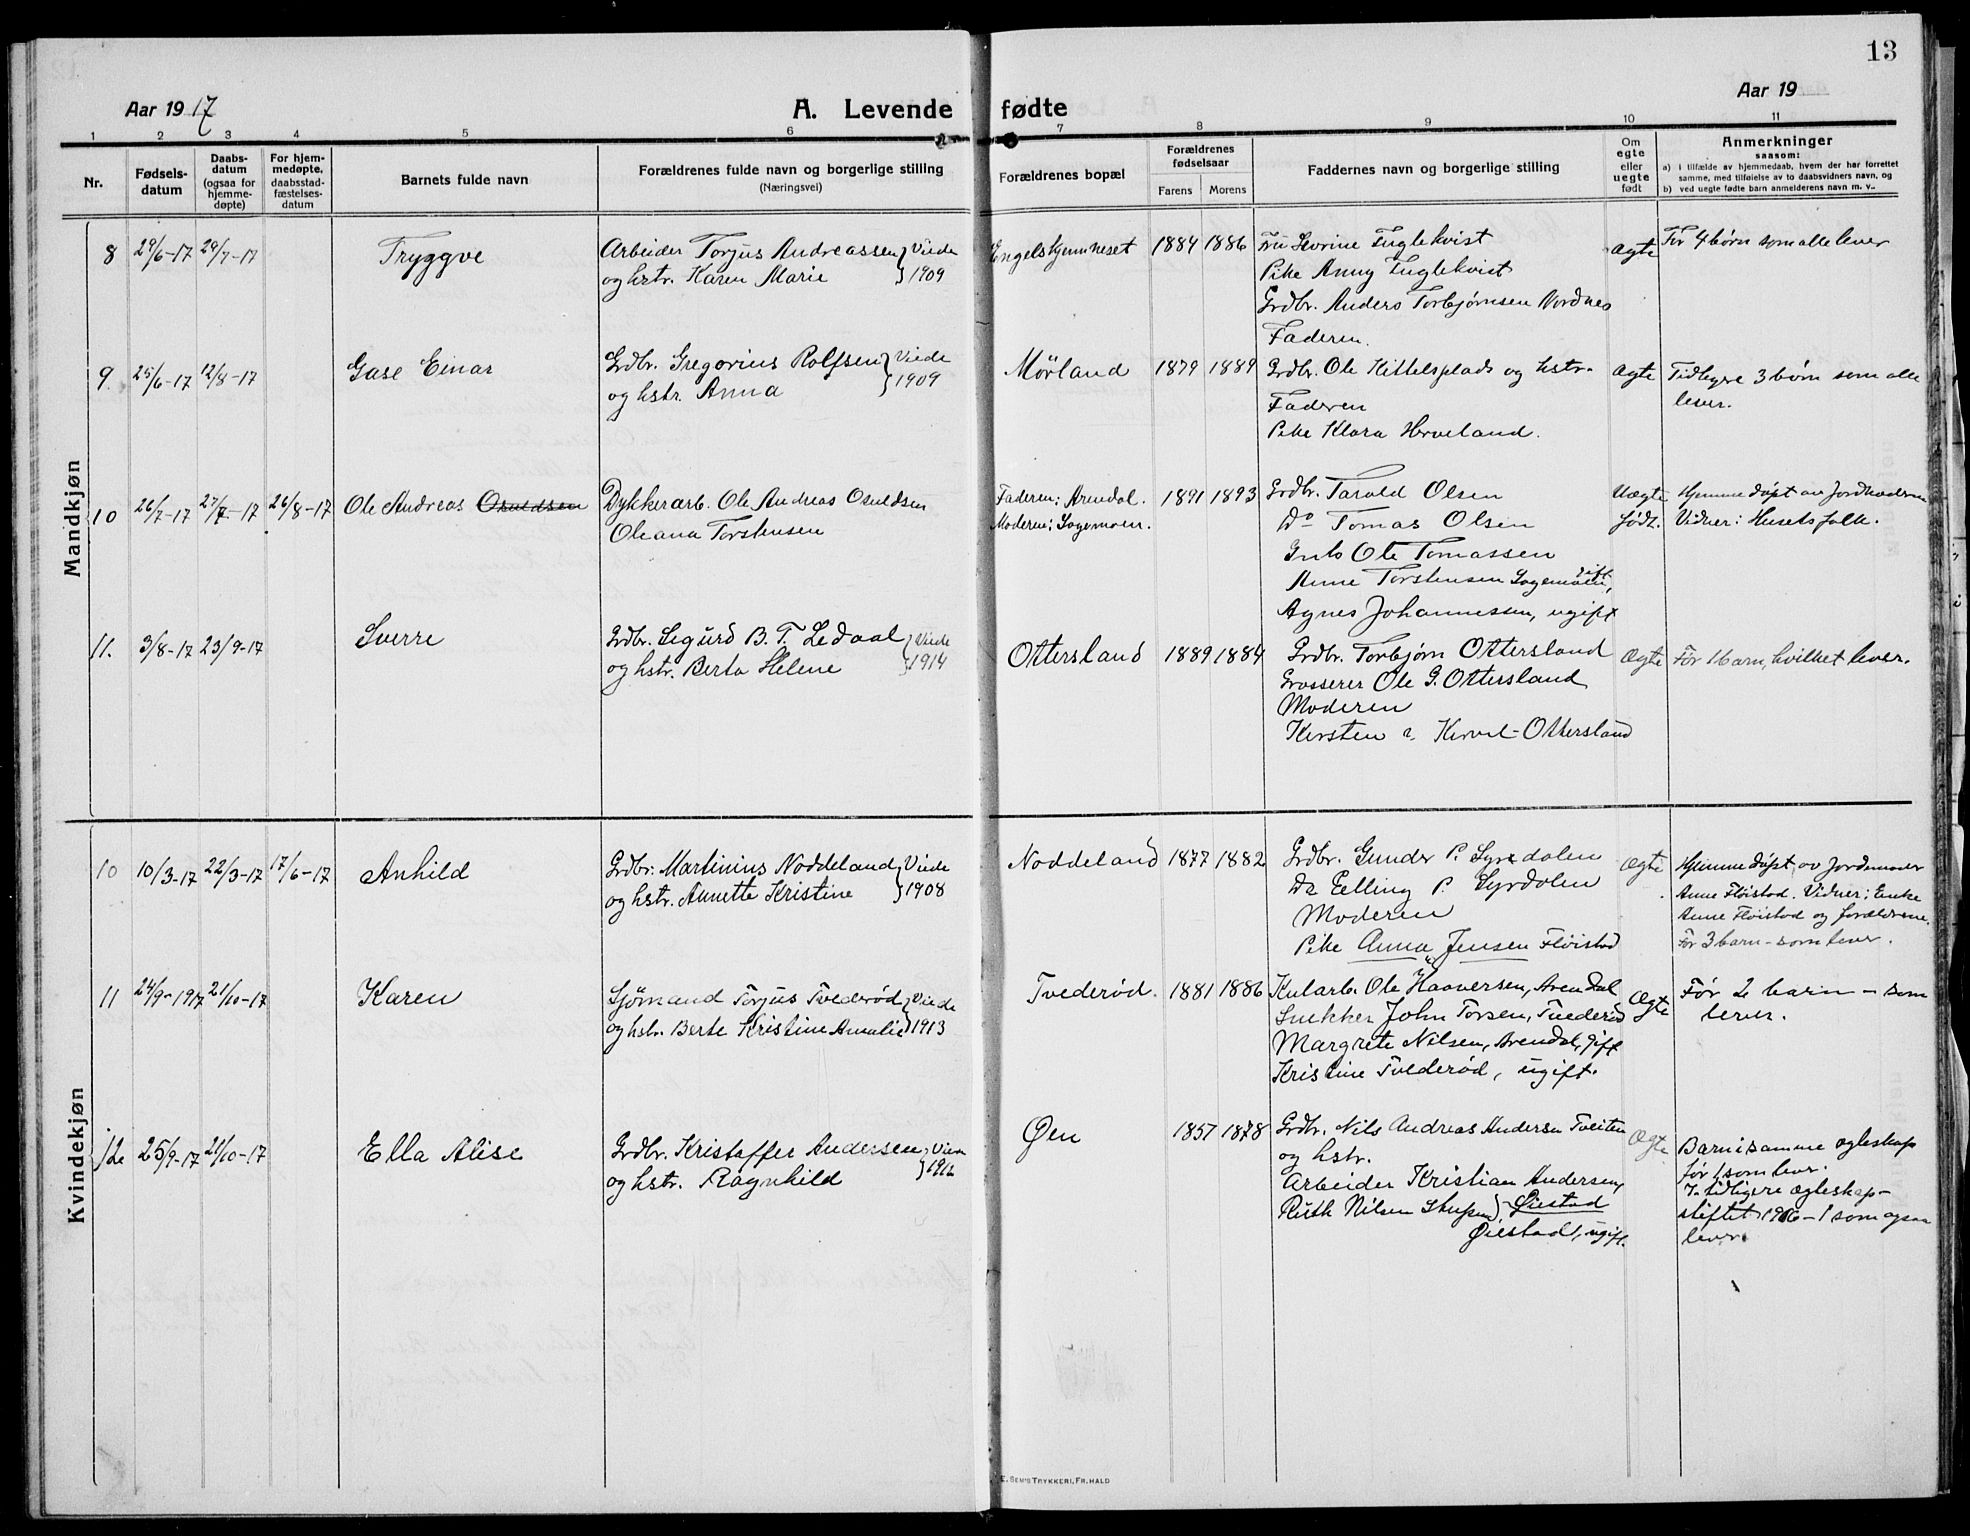 13
Aar 1917
A. Levende fødte
Aar 19
1 2 3 4 5 6 7 8 9 10 11
Nr.
Fødsels-
datum
Daabs-
datum
(ogsaa for
hjemme-
døpte)
For hjem-
medøpte,
daabsstad-
fæstelses-
datum
Barnets fulde navn
Forældrenes fulde navn og borgerlige stilling
(Næringsvei)
Forældrenes bopæl
Forældrenes
fødselsaar
Farens Morens
Faddernes navn og borgerlige stilling
Om
egte
eller
uegte
født
Anmerkninger
saasom:
a) i tilfælde av hjemmedaab, hvem der har forrettet
samme, med tilføielse av to daabsvidners navn, og
b) ved uegte fødte barn anmelderens navn m. v.
Mandkjøn
8 29/6-17 29/7-17 Tryggve
Arbeider Torjus Andreassen } Viede
og hstr. Karen Marie } 1909
1884 1886
Fru Severine Fuglekvist
Pike Anny Fuglekvist
Grdbr. Anders Torbjørnsen Nordnes
Faderen.
Ægte
Før 4 børn som alle lever
9. 25/6-17 12/8-17 Gase Einar
Grdbr. Gregorius Rolfsen } Viede
og hstr. Anna } 1909
Mørland 1879 1889
Grdbr. Ole Kittelsplads og hstr.
Faderen
Pike Klara Herveland.
Ægte
Tidligere 3 børn som alle
lever.
10 26/7-17 27/7-17 26/8-17 Ole Andreas Osuldsen
Dykkerarb. Ole Andreas Osuldsen
Oleana Torstensen
Faderen: Arendal.
Moderen: Sagemoen.
1891 1893
Grdbr. Tarald Olsen
Do Tomas Olsen
Ole Tomassen
Anne Torstensen Sagemoen, gift
Agnes Johannessen, ugift
Uægte
født.
Hjemmedøpt av Jordmoderen
Vidner: Husets folk.
11. 3/8-17 23/9-17 Sverre
Grdbr. Sigurd B. T. Ledaal } Viede
og hstr. Berta Helene } 1914
Ottersland 1889 1884
Grdbr. Torbjørn Ottersland
Grosserer Ole G. Ottersland
Moderen
Kirsten Ottersland
Ægte
Før 1 barn, hvilket lever.
Kvindekjøn
10 10/3-17 22/3-17 17/6-17 Anhild
Grdbr: Martinius Noddeland } Viede
og hstr. Annette Kristine } 1908
Noddeland 1877 1882
Grdbr. Gunder P. Syrdalen
Do Elling P. Syrdalen
Moderen
Pike Anna Jensen Fløistad
Ægte
Hjemmedøpt av Jordemoder
Anne Fløistad. Vidner: Enke
Anne Fløistad og forældrene.
Før 3 barn - som lever.
11 24/9-1917 21/10-17 Karen
Sjømand Torjus Tvederød } Viede
og hstr. Berte Kristine Amalie } 1913
Tvederød. 1881 1886
Kularb. Ole Haaversen, Arendal
Snekker John Torsen, Tvederød
Margrete Nilsen, Arendal, gift
Kristine Tvederød, ugift.
Ægte
Før 2 barn - som
lever.
12 25/9-17 21/10-17 Ella Alise
Grdbr. Kristoffer Andersen } Viede
og hstr. Ragnhild
Øen 1857 1878
Grdbr. Nils Andreas Andersen Tveiten
og hstr.
Arbeider Kristian Andersen,
Ruth Nilsen } Øiestad
Øiestad, ugift.
Ægte
Barn i samme egteskap
før 1 som lever.
I tidligere ægteskap-
stiftet 1906 - 1 som ogsaa
lever.
E. SEM'S TRYKKERI, FR.HALD